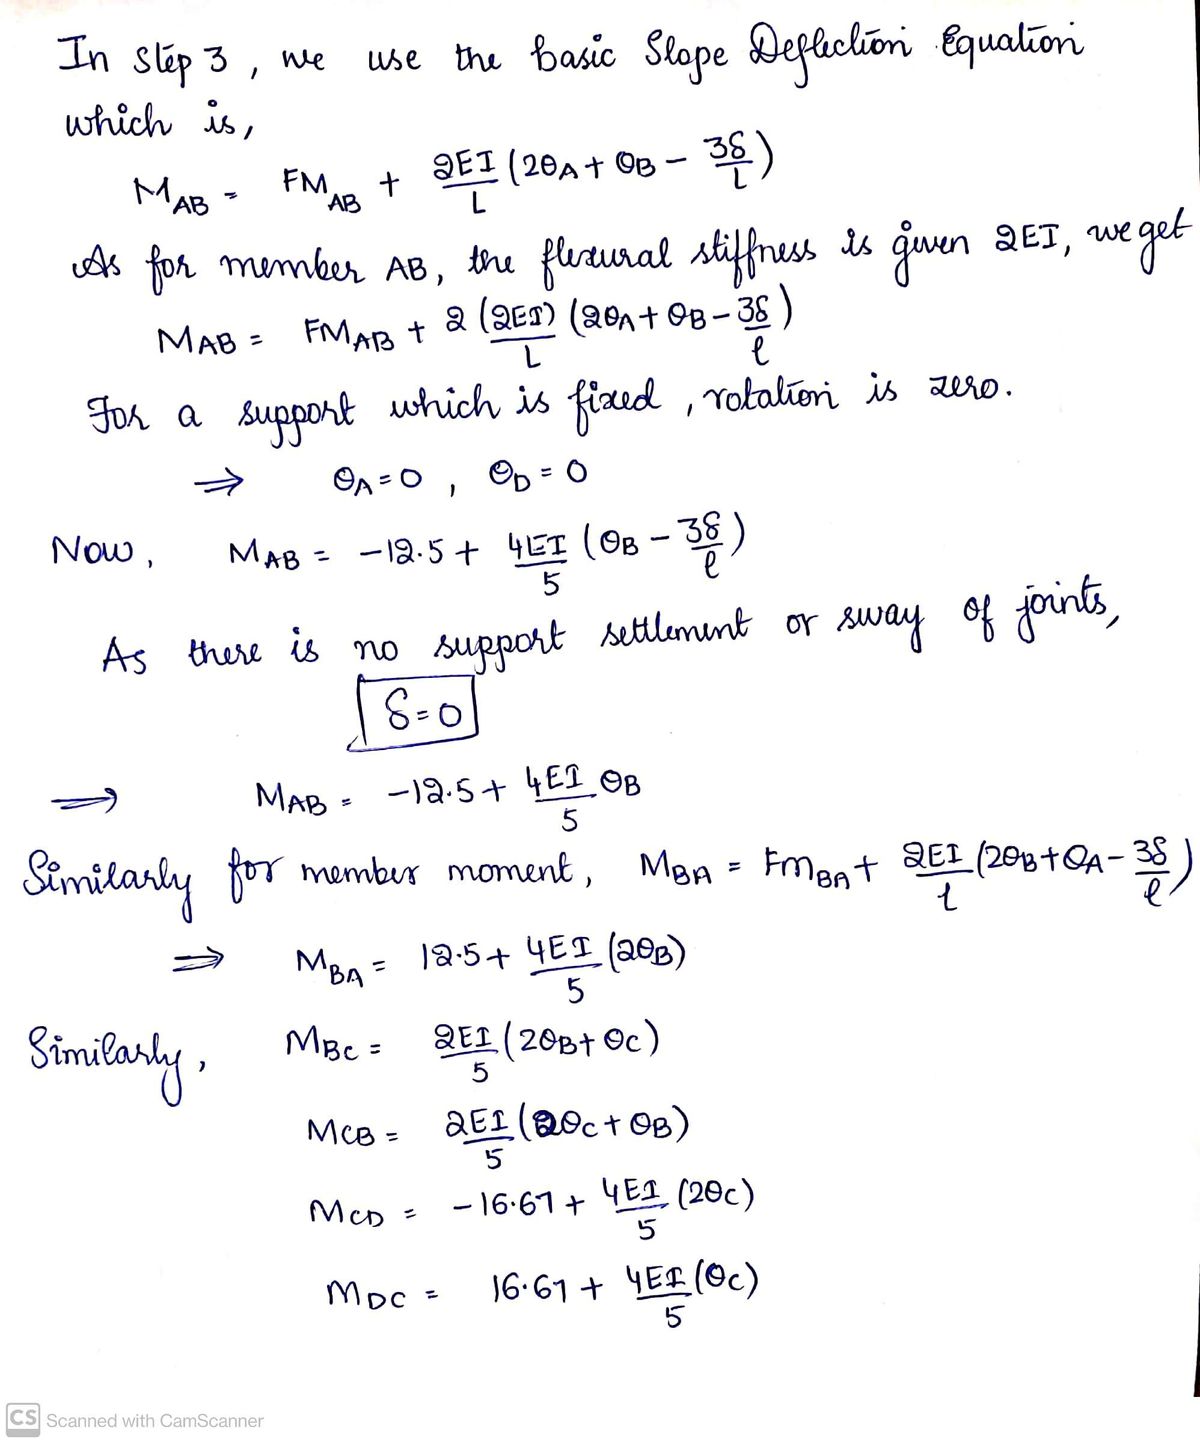 In Step 3, we use the basic Slope Deflection Equation
which is,
M_AB = FM_AB + 2EI/L (2θ_A + θ_B - 3δ/L)
As for member AB, the flexural stiffness is given 2EI, we get
M_AB = FM_AB + 2(2EI)/L (2θ_A + θ_B - 3δ/l)
For a support which is fixed, rotation is zero.
⇒ θ_A = 0, θ_D = 0
Now, M_AB = -12.5 + 4EI/5 (θ_B - 3δ/l)
As there is no support settlement or sway of joints,
δ = 0
⇒ M_AB = -12.5 + 4EI/5 θ_B
Similarly for member moment, M_BA = FM_BA + 2EI/l (2θ_B + θ_A - 3δ/l)
⇒ M_BA = 12.5 + 4EI/5 (2θ_B)
Similarly, M_BC = 2EI/5 (2θ_B + θ_C)
M_CB = 2EI/5 (2θ_C + θ_B)
M_CD = -16.67 + 4EI/5 (2θ_C)
M_DC = 16.67 + 4EI/5 (θ_C)
CS Scanned with CamScanner